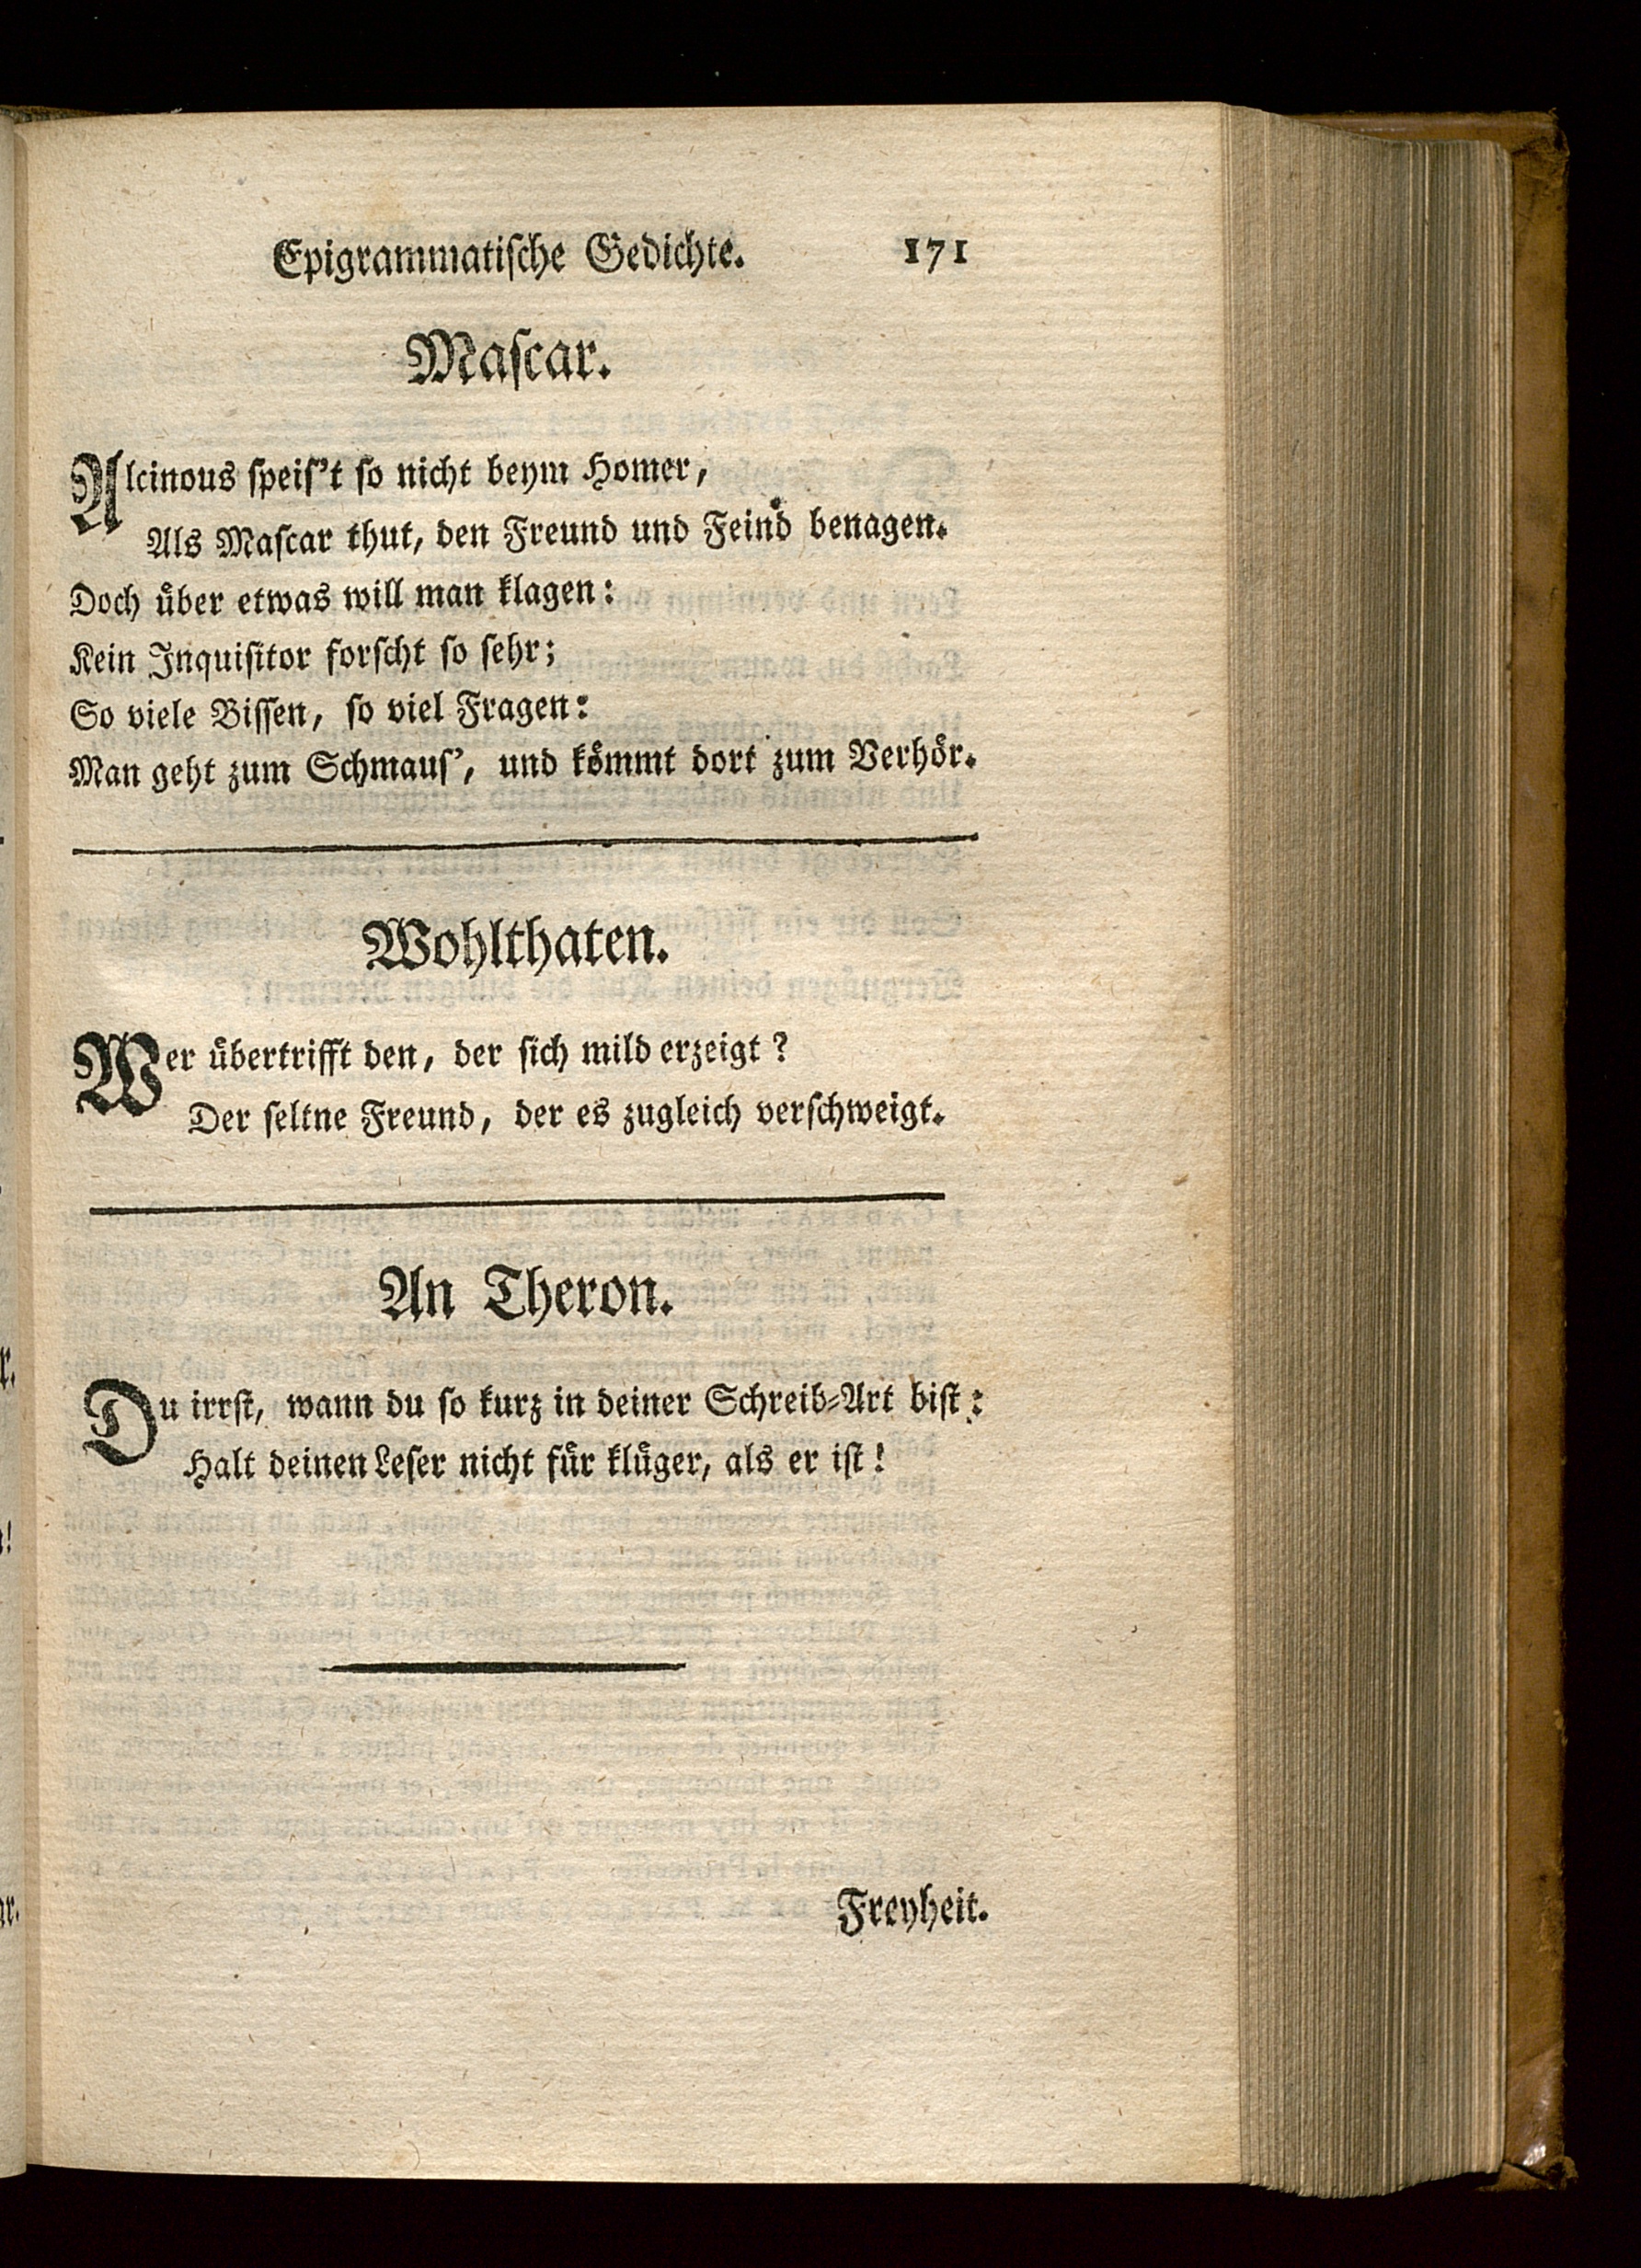 Epigrammatiſche Gedichte. 171
Maſcar.
Alcinous ſpeiſ't ſo nicht beym Homer,
Als Maſcar thut, den Freund und Feind benagen.
Doch uͤber etwas will man klagen:
Kein Inquiſitor forſcht ſo ſehr;
So viele Biſſen, ſo viel Fragen:
Man geht zum Schmauſ', und koͤmmt dort zum Verhoͤr.
Wohlthaten.
Wer uͤbertrifft den, der ſich mild erzeigt?
Der ſeltne Freund, der es zugleich verſchweigt.
An Theron.
Du irrſt, wann du ſo kurz in deiner Schreib-Art biſt:
Halt deinen Leſer nicht fuͤr kluͤger, als er iſt!
Freyheit.